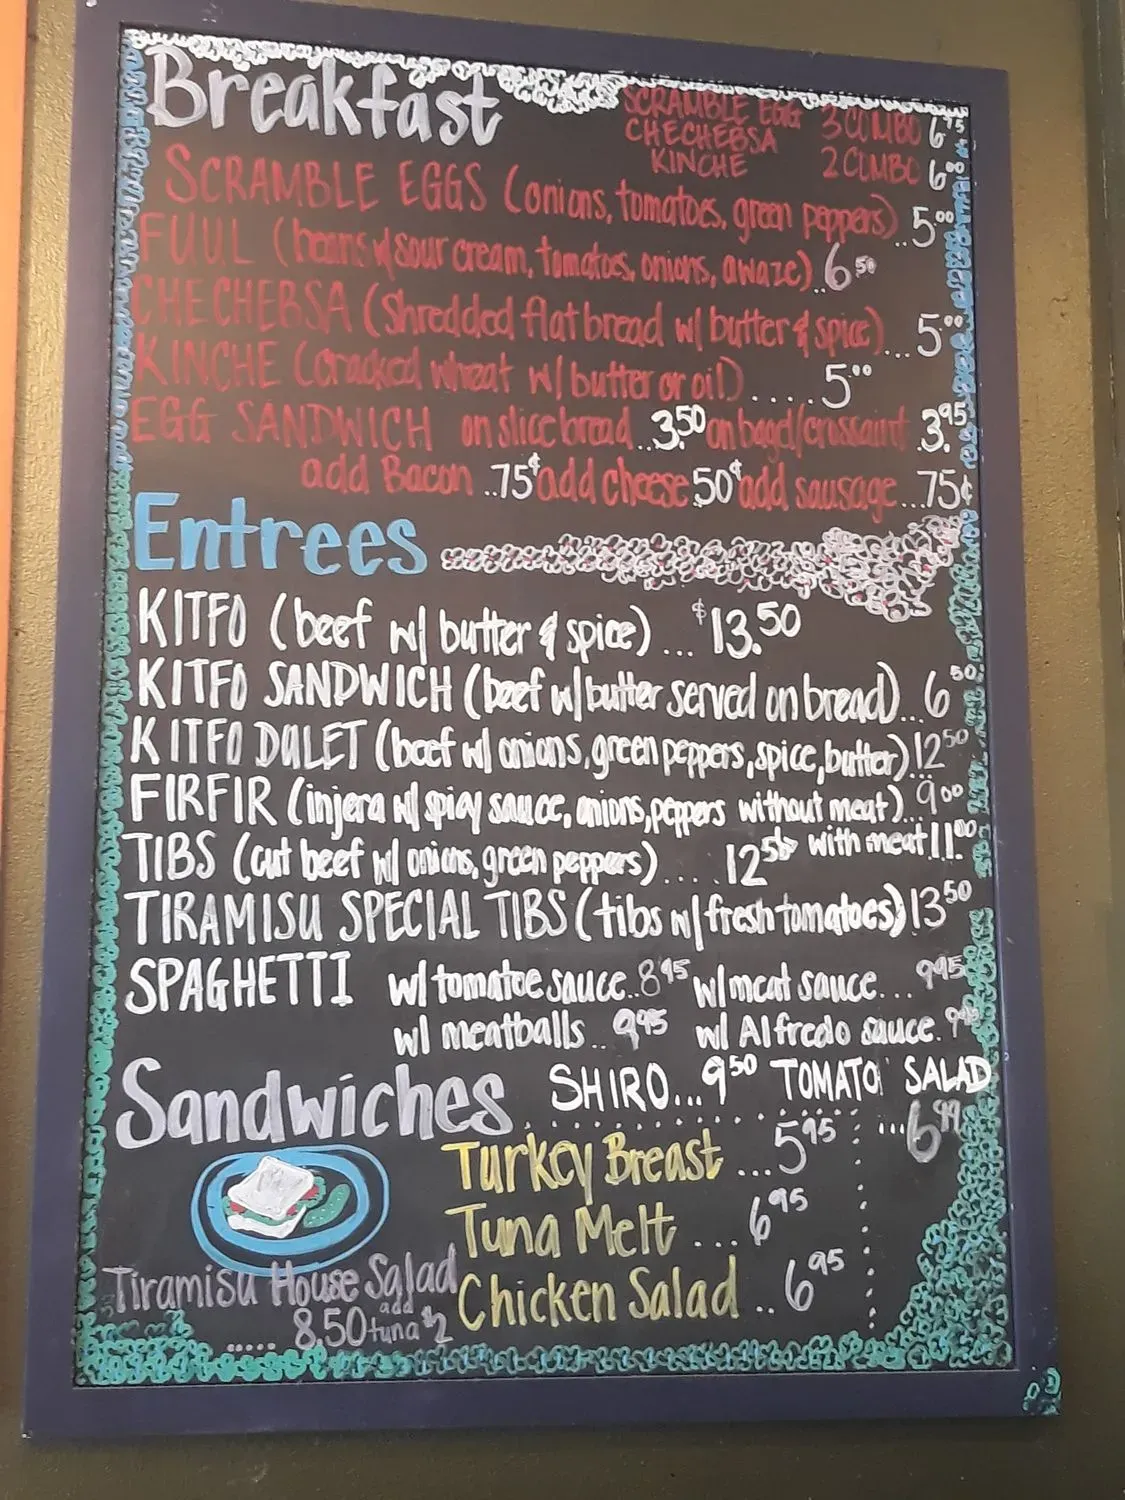 Breakfast
SCRAMBLE EGG 3 COMBO 6.75
CHECHEBSA
KINCHE 2 COMBO 6.00
SCRAMBLE EGGS (onions, tomatoes, green peppers) ..5.00
FUUL (beans w/ sour cream, tomatoes, onions, awaze) ..6.50
CHECHEBSA (shredded flat bread w/ butter & spice) ...5.00
KINCHE (cracked wheat w/ butter or oil) ....5.00
EGG SANDWICH on slice bread ..3.50 on bagel/crossaint 3.95
add Bacon ..75¢ add cheese 50¢ add sausage ...75¢
Entrees
KITFO (beef w/ butter & spice) ... $13.50
KITFO SANDWICH (beef w/ butter served on bread) ...6.50
KITFO DULET (beef w/ onions, green peppers, spice, butter) ..12.50
FIRFIR (injera w/ spicy sauce, onions, peppers without meat) ...9.00
with meat 11.00
TIBS (cut beef w/ onions, green peppers) .... 12.50
TIRAMISU SPECIAL TIBS (tibs w/ fresh tomatoes) 13.50
SPAGHETTI w/ tomatoe sauce..8.95 w/ meat sauce... 9.95
w/ meatballs.. 9.95 w/ Alfredo sauce.
SHIRO...9.50 TOMATO SALAD
...6.99
Sandwiches
Turkey Breast ...5.95
Tuna Melt ... 6.95
Chicken Salad .. 6.95
Tiramisu House Salad
..... 8.50 add tuna $2